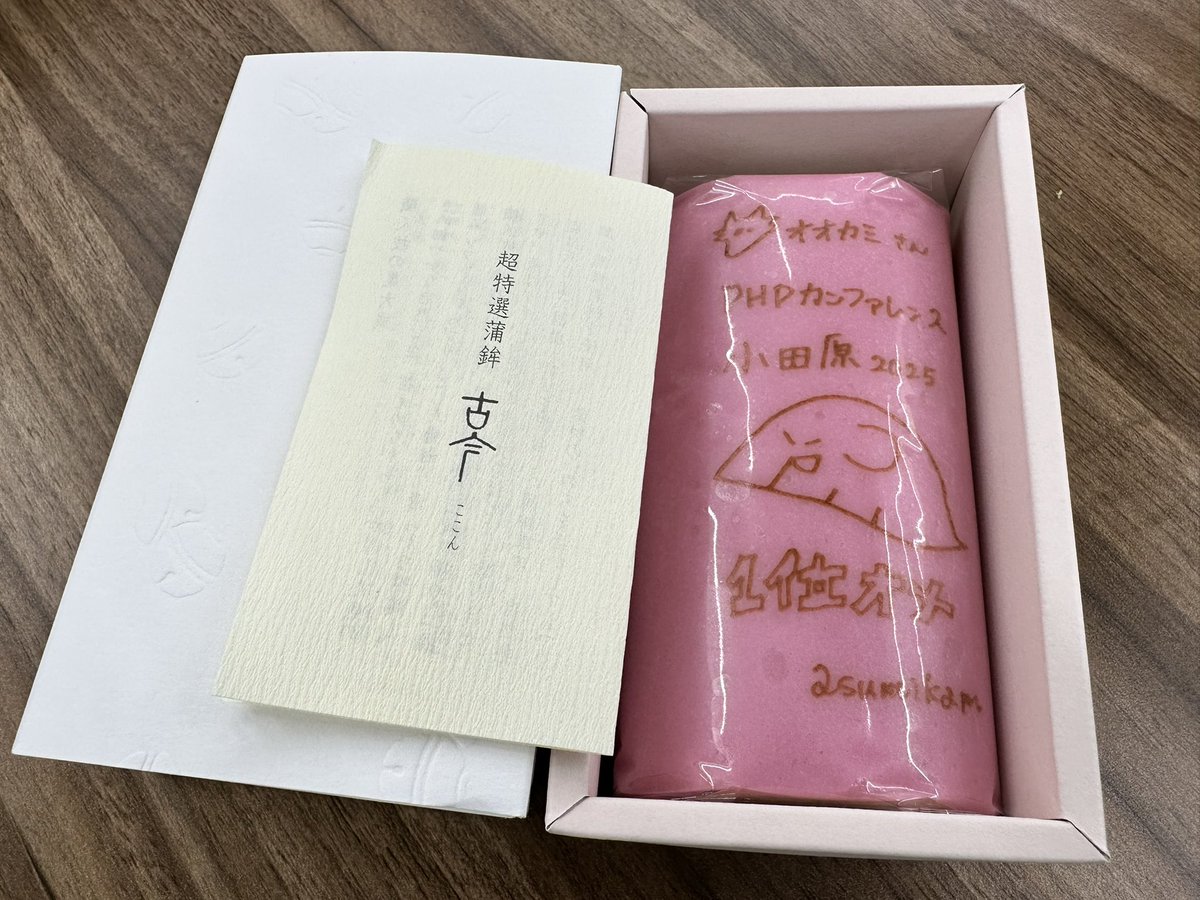 超特選蒲鉾
古今
ここん
オオカミさん
PHPカンファレンス
小田原2025
1位オメ
asumikam